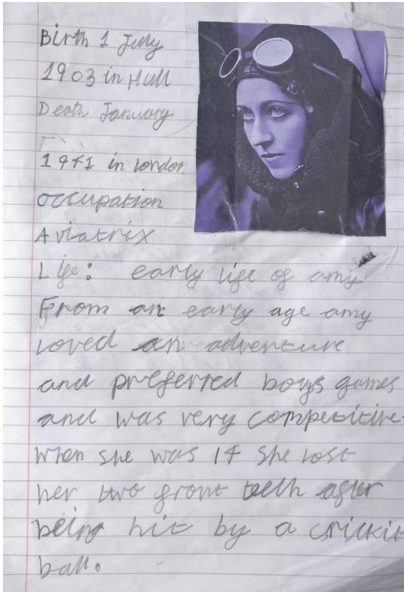 Birth 1 July
1903 in Hull
Death January
1941 in London
occupation
Aviatrix
Life: early life of amy
From an early age amy
loved an adventure
and preferred boys games
and was very competitive
when she was 14 she lost
her two front teeth after
being hit by a crickit
ball.